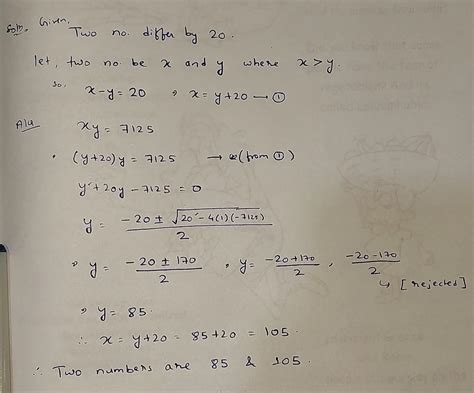 Soln. Given,
Two no. differ by 20.
let, two no. be x and y where x > y.
so, x-y = 20 ⇒ x = y+20 — ①
Also xy = 7125
(y+20)y = 7125 → (from ①)
y²+20y-7125 = 0
y = (-20 ± √(20²-4(1)(-7125)))/2
⇒ y = (-20 ± 170)/2 , y = (-20+170)/2 , (-20-170)/2
↳ [rejected]
⇒ y = 85.
∴ x = y+20 = 85+20 = 105.
∴ Two numbers are 85 & 105.